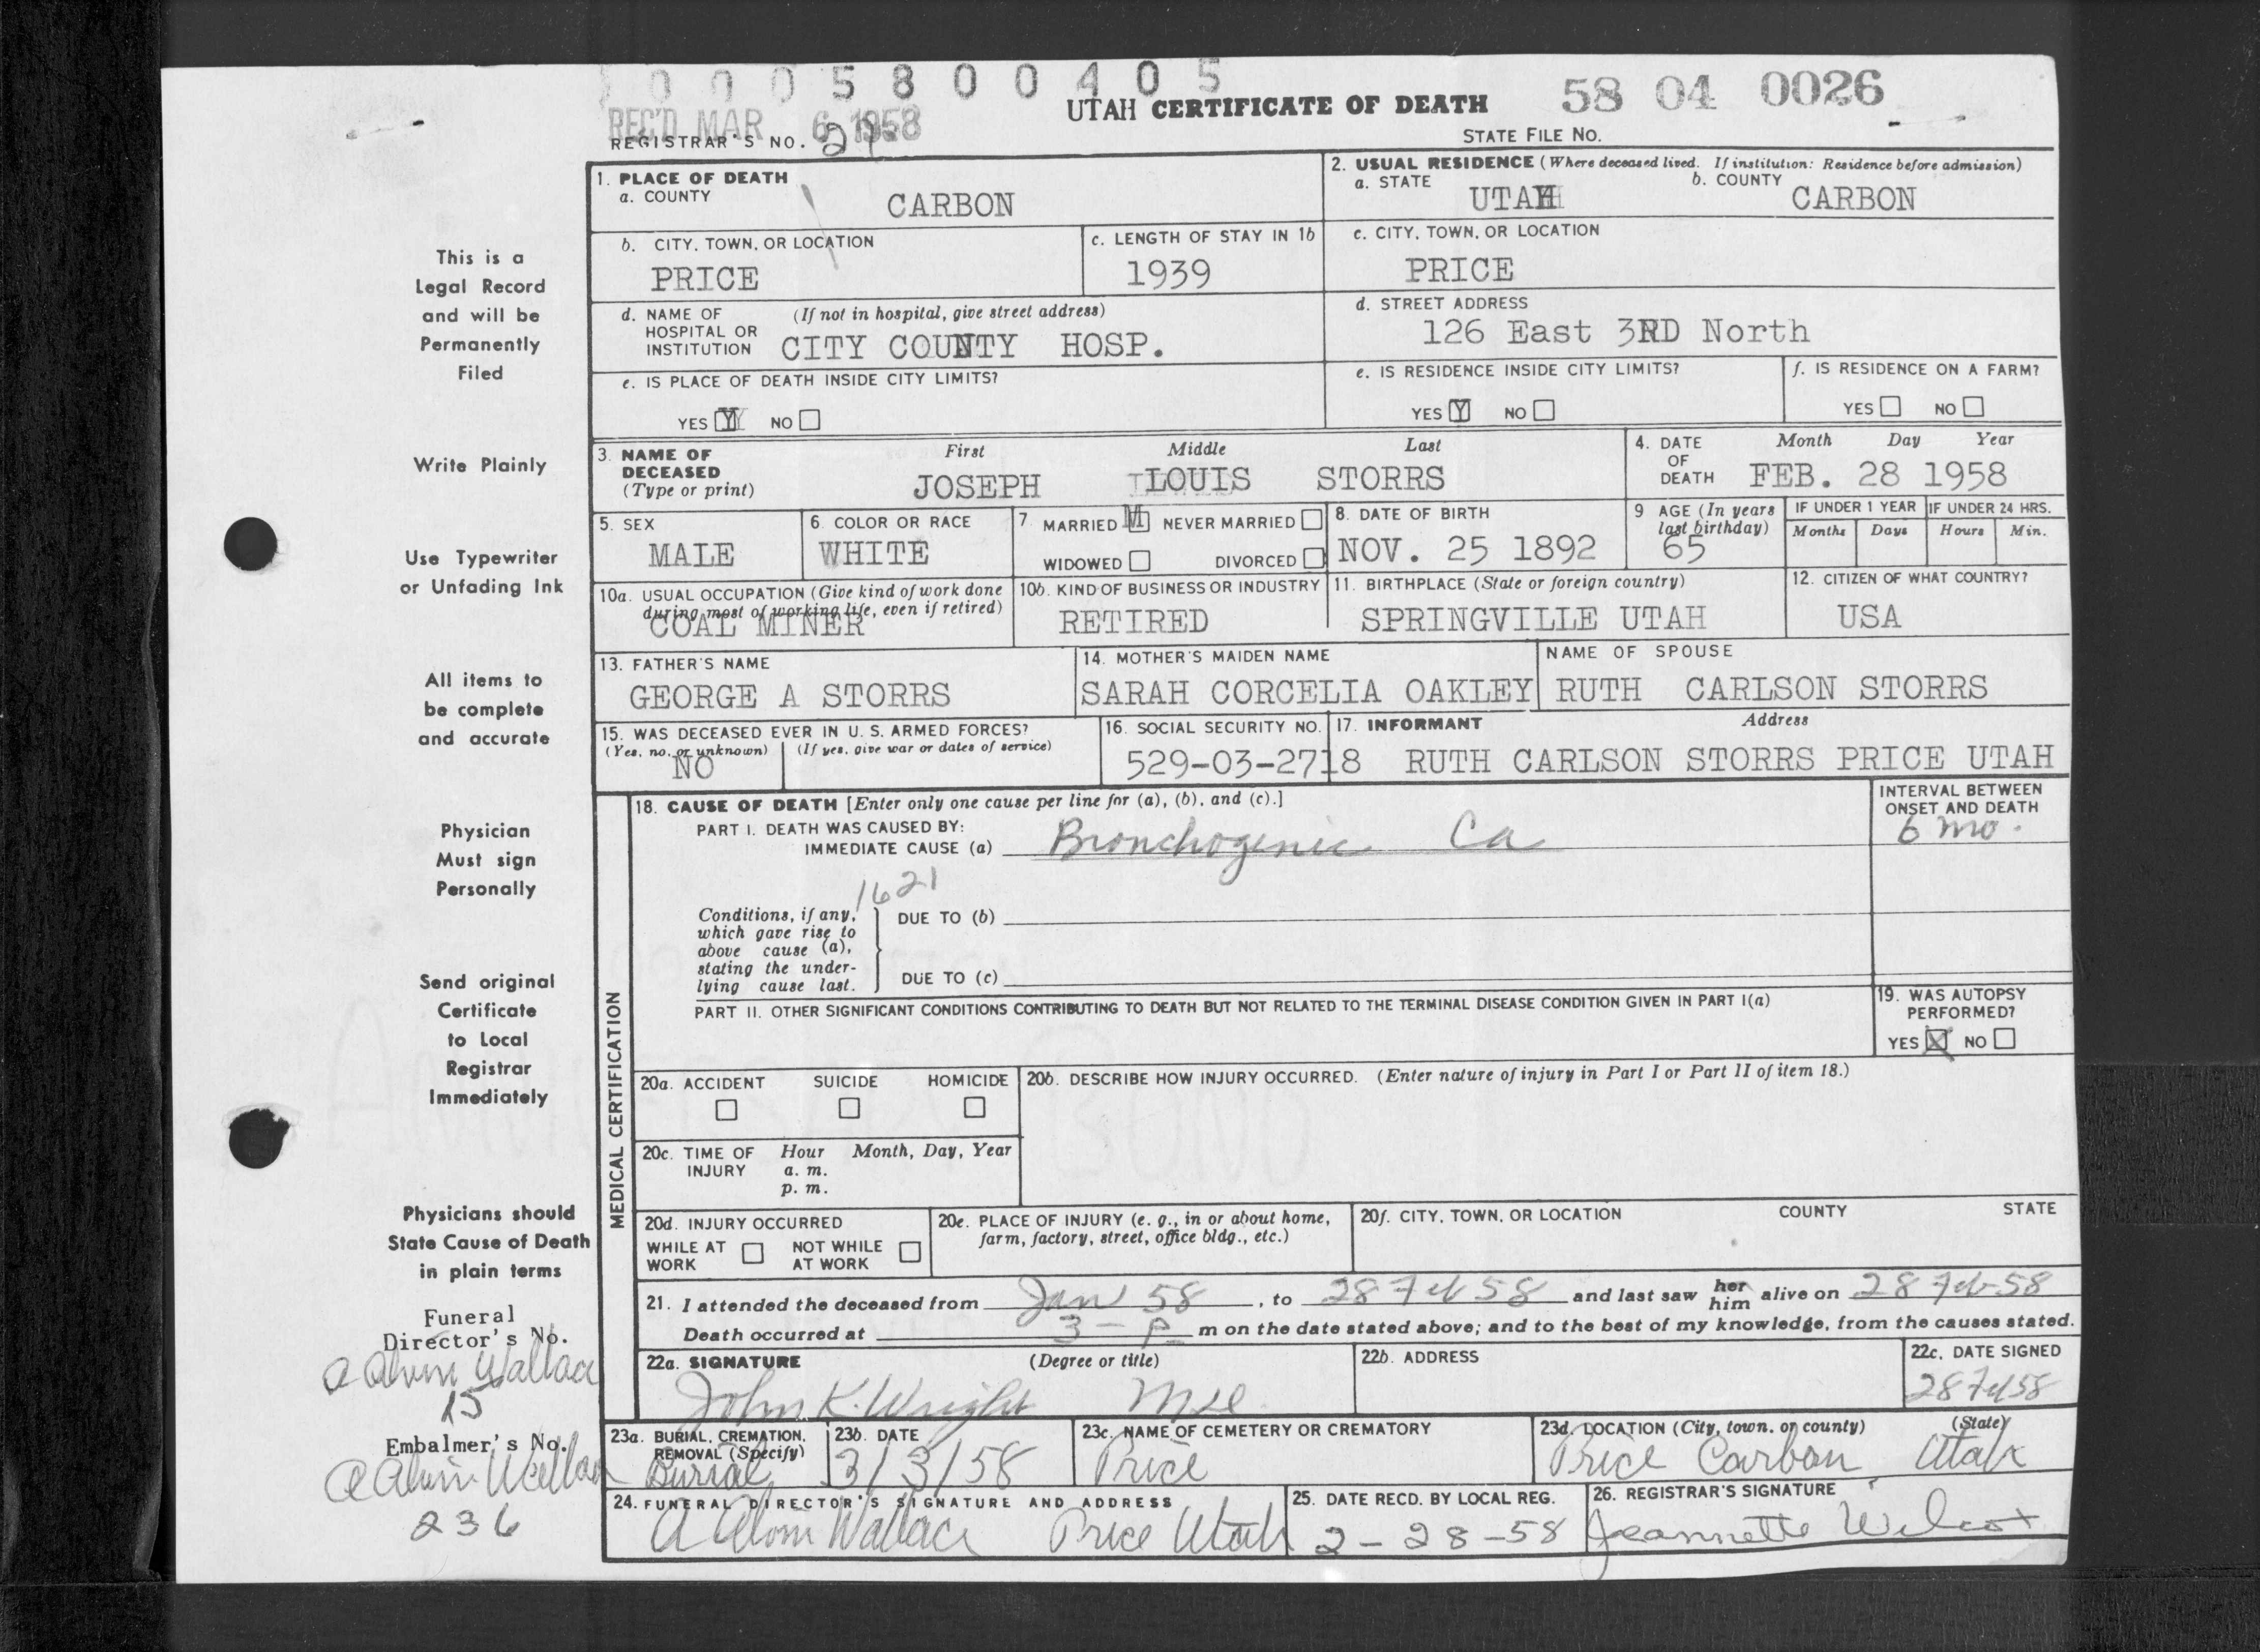 0 0 0 5 8 0 0 4 0 5
REC'D MAR 6 1958
UTAH CERTIFICATE OF DEATH
58 04 0026
REGISTRAR'S NO.
STATE FILE NO.
This is a
Legal Record
and will be
Permanently
Filed
Write Plainly
Use Typewriter
or Unfading Ink
All items to
be complete
and accurate
Physician
Must sign
Personally
Send original
Certificate
to Local
Registrar
Immediately
Physicians should
State Cause of Death
in plain terms
Funeral
Director's No.
A Alvin Wallace
15
Embalmer's No.
A Alvin Wallace
236
1. PLACE OF DEATH
a. COUNTY
CARBON
2. USUAL RESIDENCE (Where deceased lived. If institution: Residence before admission)
a. STATE UTAH b. COUNTY CARBON
b. CITY, TOWN, OR LOCATION
PRICE
c. LENGTH OF STAY IN 1b
1939
c. CITY, TOWN, OR LOCATION
PRICE
d. NAME OF (If not in hospital, give street address)
HOSPITAL OR
INSTITUTION CITY COUNTY HOSP.
d. STREET ADDRESS
126 East 3RD North
e. IS PLACE OF DEATH INSIDE CITY LIMITS?
YES Y NO
e. IS RESIDENCE INSIDE CITY LIMITS?
YES Y NO
f. IS RESIDENCE ON A FARM?
YES NO
3. NAME OF
DECEASED
(Type or print)
First Middle Last
JOSEPH LOUIS STORRS
4. DATE
OF
DEATH
Month Day Year
FEB. 28 1958
5. SEX
MALE
6. COLOR OR RACE
WHITE
7. MARRIED NEVER MARRIED
WIDOWED DIVORCED
8. DATE OF BIRTH
NOV. 25 1892
9 AGE (In years
last birthday)
65
IF UNDER 1 YEAR
Months Days
IF UNDER 24 HRS.
Hours Min.
10a. USUAL OCCUPATION (Give kind of work done
during most of working life, even if retired)
COAL MINER
10b. KIND OF BUSINESS OR INDUSTRY
RETIRED
11. BIRTHPLACE (State or foreign country)
SPRINGVILLE UTAH
12. CITIZEN OF WHAT COUNTRY?
USA
13. FATHER'S NAME
GEORGE A STORRS
14. MOTHER'S MAIDEN NAME
SARAH CORCELIA OAKLEY
NAME OF SPOUSE
RUTH CARLSON STORRS
15. WAS DECEASED EVER IN U. S. ARMED FORCES?
(Yes, no, or unknown) (If yes, give war or dates of service)
NO
16. SOCIAL SECURITY NO.
529-03-2718
17. INFORMANT Address
RUTH CARLSON STORRS PRICE UTAH
MEDICAL CERTIFICATION
18. CAUSE OF DEATH [Enter only one cause per line for (a), (b), and (c).]
PART I. DEATH WAS CAUSED BY:
IMMEDIATE CAUSE (a) Bronchogenic Ca
INTERVAL BETWEEN
ONSET AND DEATH
6 mo.
1621
Conditions, if any,
which gave rise to
above cause (a),
stating the under-
lying cause last.
DUE TO (b)
DUE TO (c)
PART II. OTHER SIGNIFICANT CONDITIONS CONTRIBUTING TO DEATH BUT NOT RELATED TO THE TERMINAL DISEASE CONDITION GIVEN IN PART I(a)
19. WAS AUTOPSY
PERFORMED?
YES X NO
20a. ACCIDENT SUICIDE HOMICIDE
20b. DESCRIBE HOW INJURY OCCURRED. (Enter nature of injury in Part I or Part II of item 18.)
20c. TIME OF Hour Month, Day, Year
INJURY a. m.
p. m.
20d. INJURY OCCURRED
WHILE AT NOT WHILE
WORK AT WORK
20e. PLACE OF INJURY (e. g., in or about home,
farm, factory, street, office bldg., etc.)
20f. CITY, TOWN, OR LOCATION COUNTY STATE
21. I attended the deceased from Jan 58, to 28 Feb 58 and last saw her him alive on 28 Feb 58
Death occurred at 3 - P m on the date stated above; and to the best of my knowledge, from the causes stated.
22a. SIGNATURE (Degree or title)
John K. Wright MD
22b. ADDRESS
22c. DATE SIGNED
28 Feb 58
23a. BURIAL, CREMATION,
REMOVAL (Specify)
Burial
23b. DATE
3/3/58
23c. NAME OF CEMETERY OR CREMATORY
Price
23d. LOCATION (City, town, or county) (State)
Price Carbon Utah
24. FUNERAL DIRECTOR'S SIGNATURE AND ADDRESS
A Alvin Wallace Price Utah
25. DATE RECD. BY LOCAL REG.
2-28-58
26. REGISTRAR'S SIGNATURE
Jeannette Wilcox